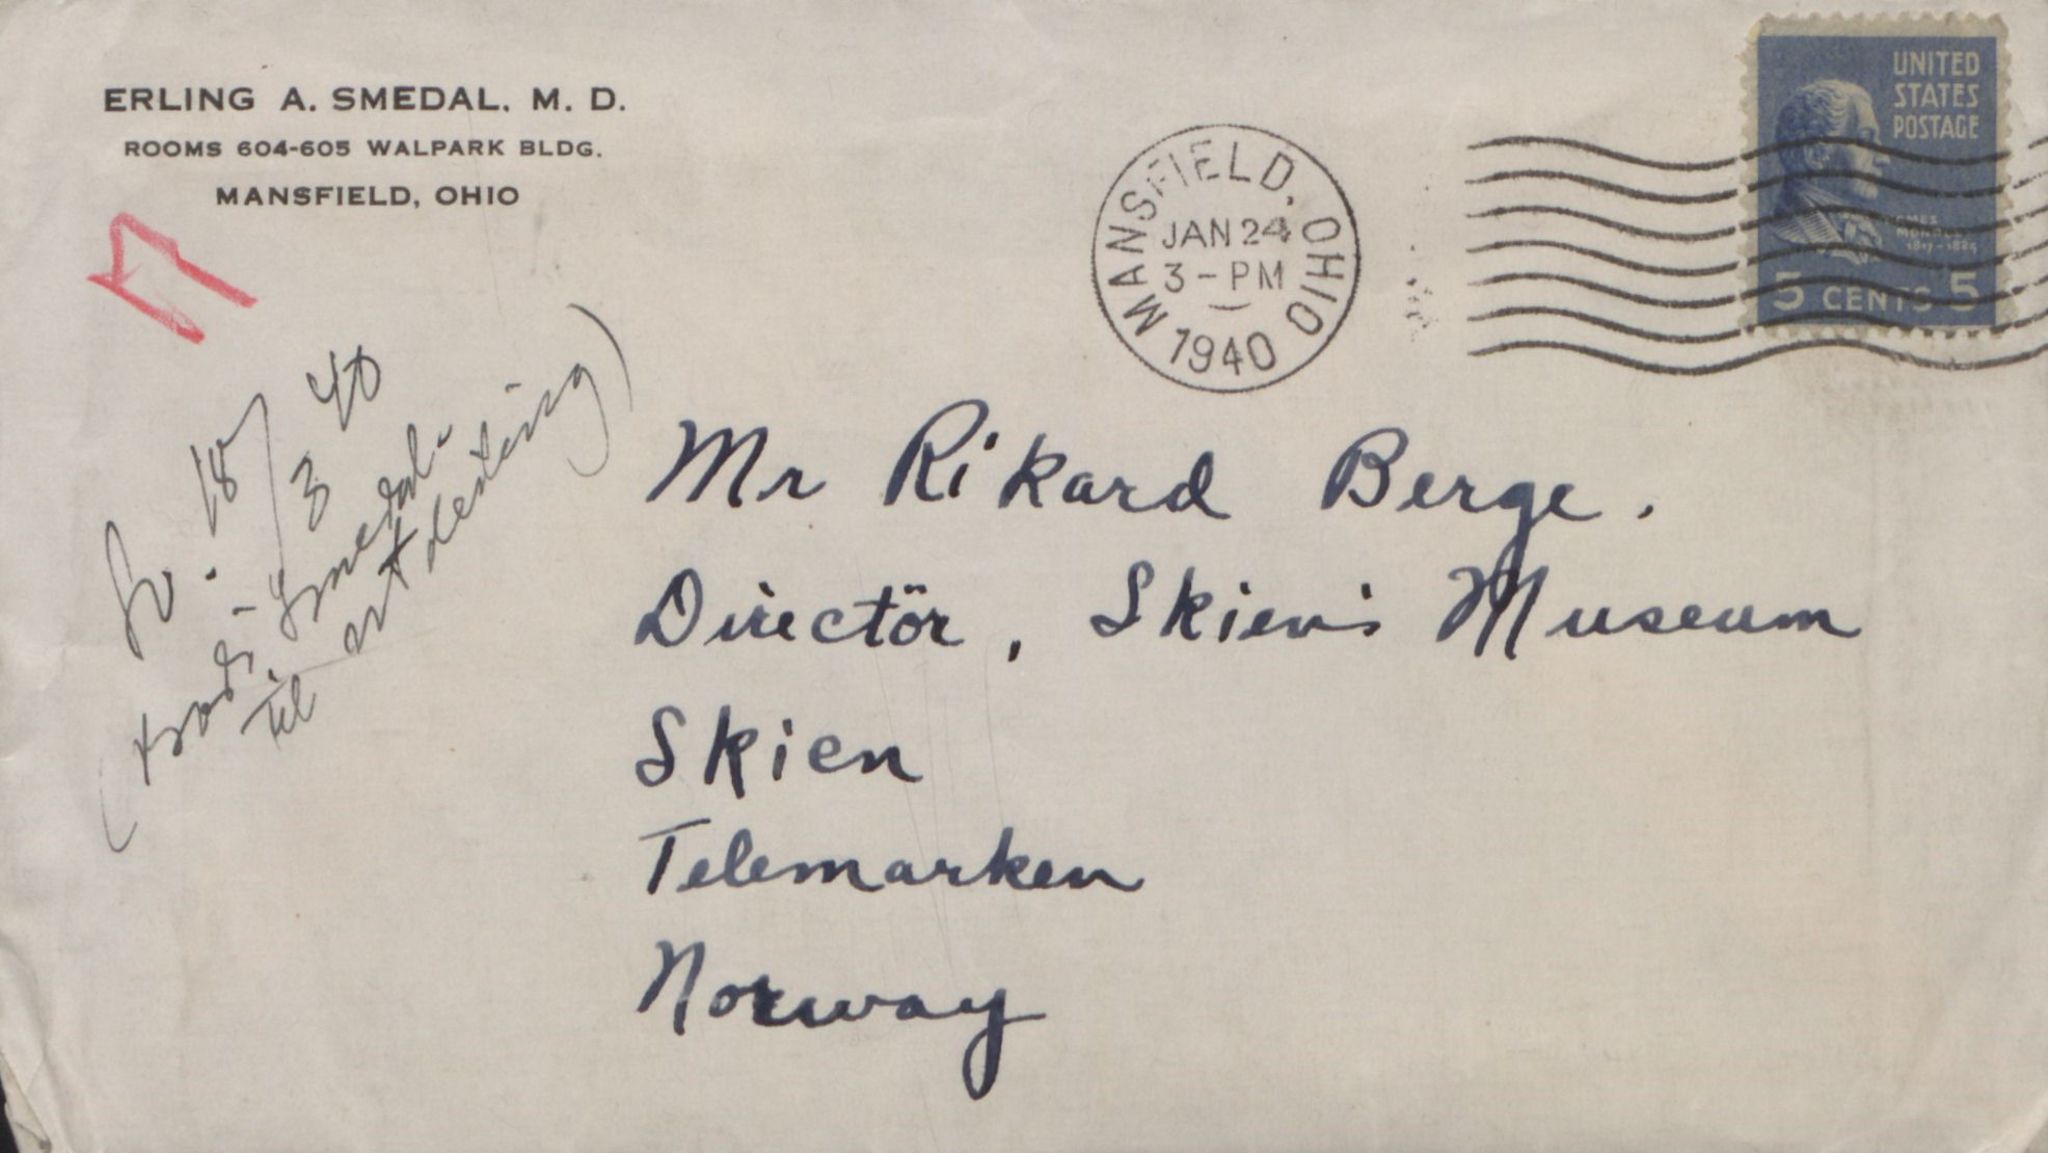 ERLING A. SMEDAL, M. D.
ROOMS 604-605 WALPARK BLDG.
MANSFIELD, OHIO
MANSFIELD, OHIO
JAN 24
3 - PM
1940
UNITED
STATES
POSTAGE
JAMES
MONROE
1817-1825
5 CENTS 5
18/3 40
Smedal-
til
Mr Rikard Berge.
Directör, Skien's Museum
Skien
Telemarken
Norway